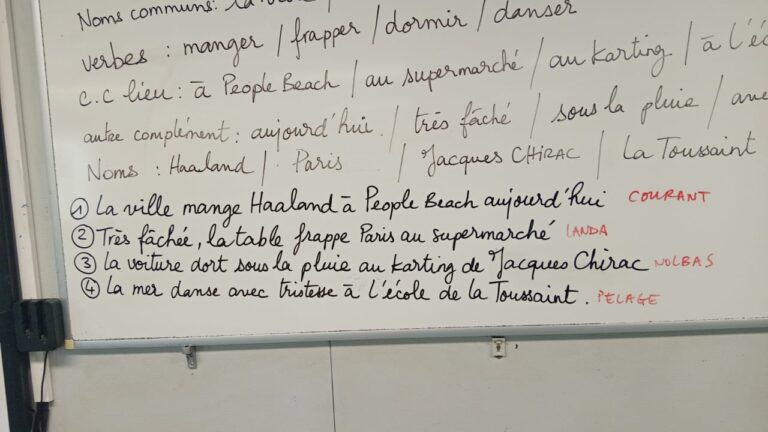 Noms communs: la
verbes : manger / frapper / dormir / danser
c.c lieu : à People Beach / au supermarché / au karting / à l'éc
autre complément : aujourd'hui / très fâché / sous la pluie / ave
Noms : Haaland / Paris / Jacques CHIRAC / La Toussaint
① La ville mange Haaland à People Beach aujourd'hui COURANT
② Très fâchée, la table frappe Paris au supermarché LANDA
③ La voiture dort sous la pluie au karting de Jacques Chirac NOLBAS
④ La mer danse avec tristesse à l'école de la Toussaint. PELAGE